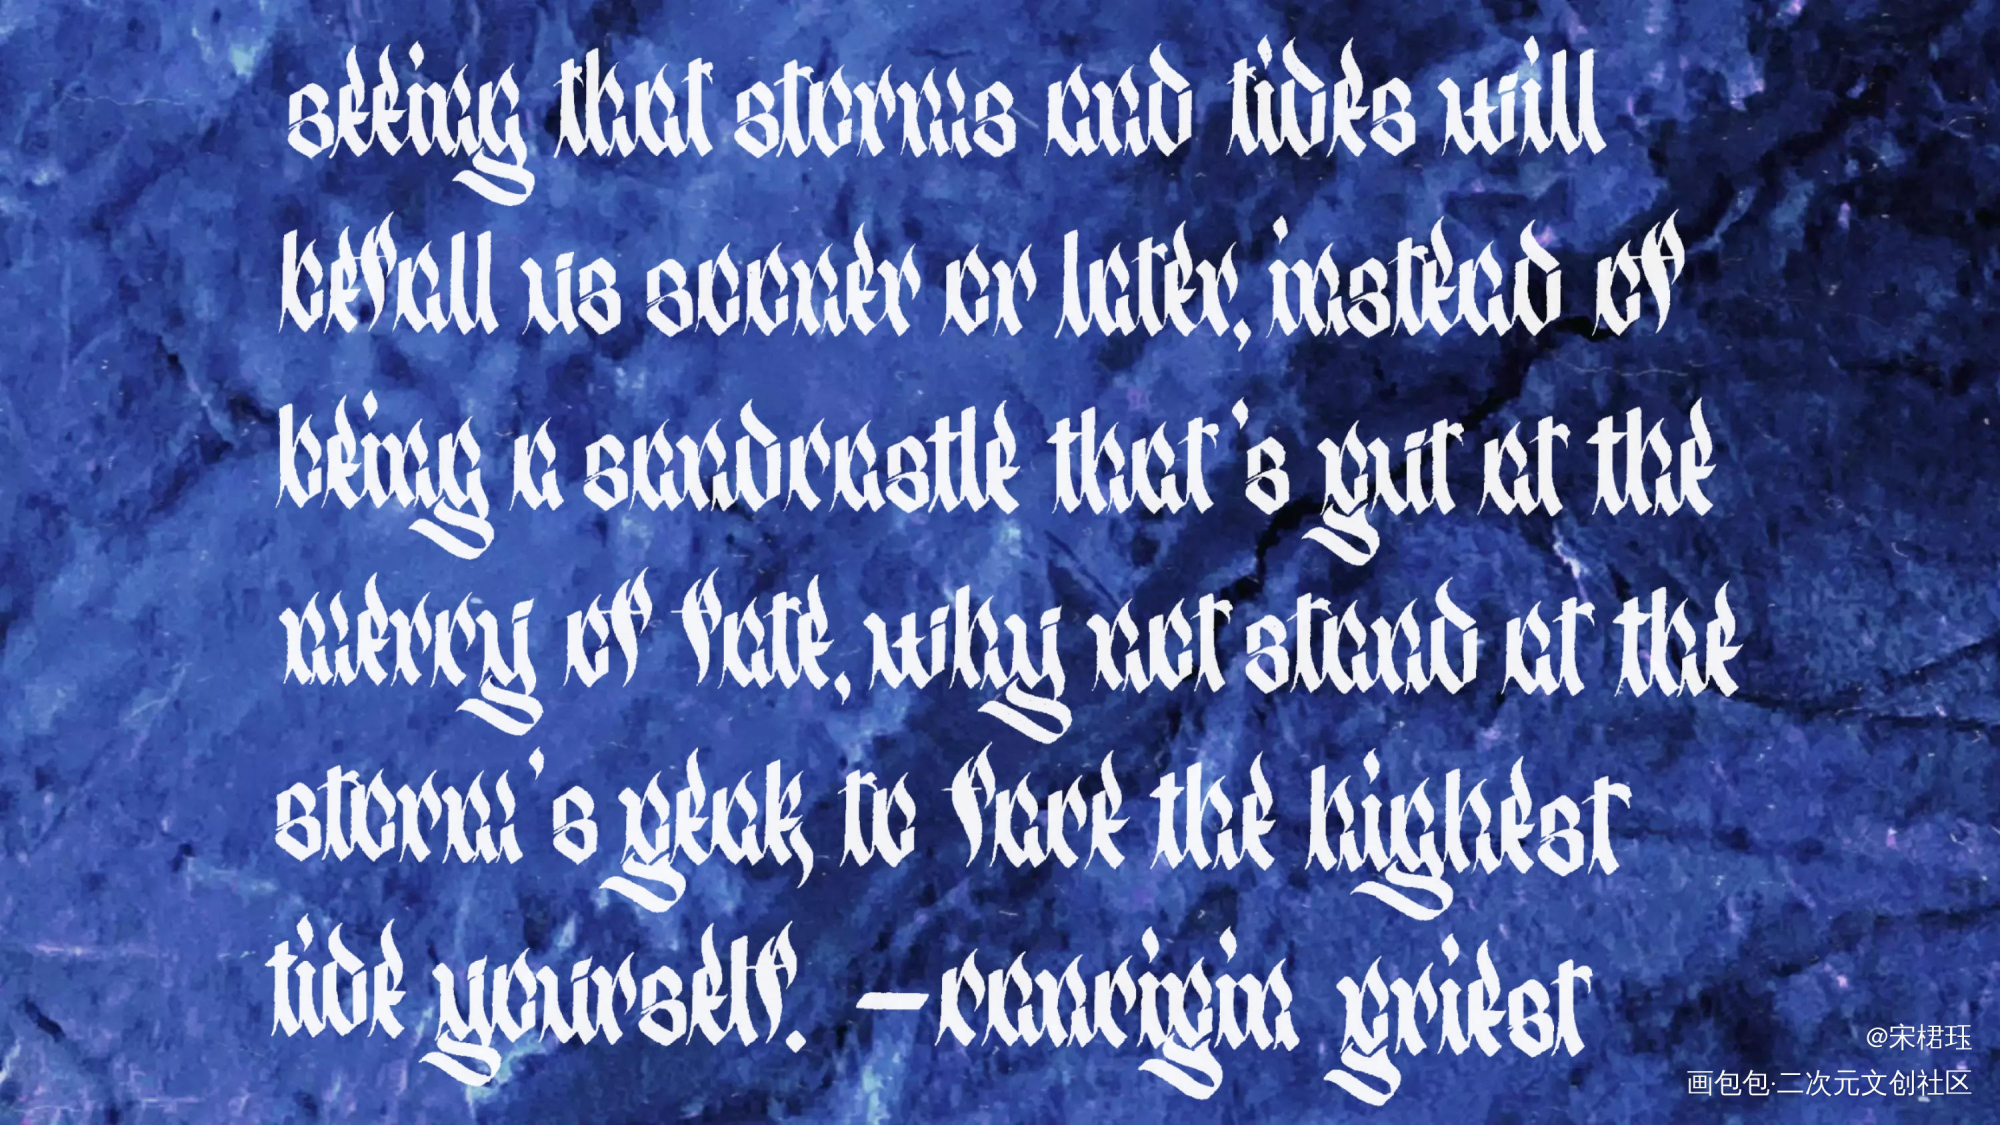 seeing that storms and tides will
befall us sooner or later, instead of
being a sandcastle that's put at the
mercy of fate, why not stand at the
storm's peak to face the highest
tide yourself. — priest
@宋桾珏
画包包·二次元文创社区